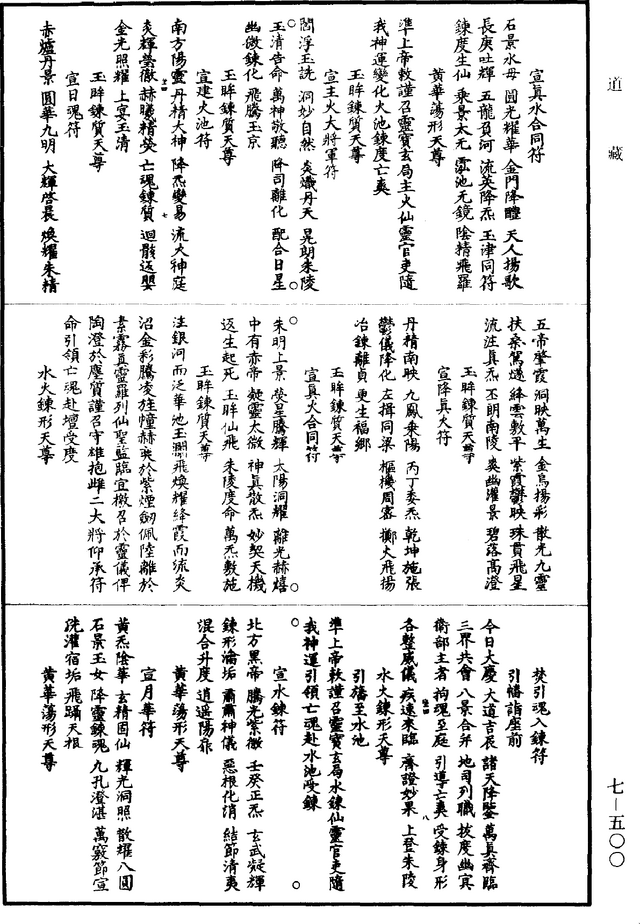 道藏
宣眞水合同符
石景水母　圓光耀華　金門降醴　天人揚歌
長庚吐輝　五龍負河　流英降炁　玉津同符
鍊度生仙　乘景太无　靈池无鏡　陰精飛羅
黃華蕩形天尊
準上帝敕謹召靈寶玄局主火仙靈官吏隨
我神運變化火池鍊度亡爽
玉眸鍊質天尊
宣主火大將軍符
閻浮玉詵　洞妙自然　炎熾丹天　晃朗朱陵
玉清告命　萬神敬聽　降司離化　配合日星
幽微鍊化　飛騰玉京
玉眸鍊質天尊
宣建火池符
南方陽靈　丹精大神　降炁變易　流火神庭
炎輝熒徹　赫曦精熒　亡魂鍊質　迴骸返嬰
金光照耀　上宴玉清
玉眸鍊質天尊
宣日魂符
赤爐丹景　圓華九明　大輝啓晨　煥耀朱精
五帝擎霞　洞映萬生　金烏揚彩　散光九靈
扶桑駕飈　絳雲敷平　紫霞鬱映　珠貫飛星
流注眞炁　丕朗南陵　炎幽灌景　碧落高澄
玉眸鍊質天尊
宣降眞火符
丹精南映　九鳳乘陽　丙丁委炁　乾坤施張
鬱儀降化　左揖同梁　樞機周密　擲火飛揚
冶鍊離貞　更生福鄉
玉眸鍊質天尊
宣眞火合同符
朱明上景　熒星騰輝　太陽洞耀　離光赫熺
中有赤帝　凝靈太微　神眞散炁　妙契天機
返生起死　玉眸仙飛　朱陵度命　萬炁敷施
玉眸鍊質天尊
注銀河而泛華池玉瀾飛煥耀絳霞而流炎
沼金彩騰凌旌幢赫奕於紫煙劒佩陸離於
素霧眞靈羅列仙聖監臨宜檄召於靈儀俾
陶澄於塵質謹召守雄抱雌二大將仰承符
命引領亡魂赴壇受度
水火鍊形天尊
焚引魂入鍊符
引幡詣座前
今日大慶　大道吉辰　諸天降鑒　萬眞齊臨
三界共會　八景合并　地司列職　拔度幽冥
衛部主者　拘魂至庭　引導亡爽　受鍊身形
各整威儀　疾速來臨　齊證妙果　上登朱陵
水火鍊形天尊
引幡至水池
準上帝敕謹召靈寶玄局水鍊仙靈官吏隨
我神運引領亡魂赴水池受鍊
宣水鍊符
北方黑帝　騰光紫微　壬癸正炁　玄武凝輝
鍊形滌垢　肅肅神儀　惡根化消　結節清夷
混合斗度　逍遥陽歸
黃華蕩形天尊
宣月華符
黃炁陰華　玄精固仙　輝光洞照　散耀八圓
石景玉女　降靈鍊魂　九孔澄湛　萬竅節宣
洗灌宿垢　飛躡天根
黃華蕩形天尊
七—五〇〇